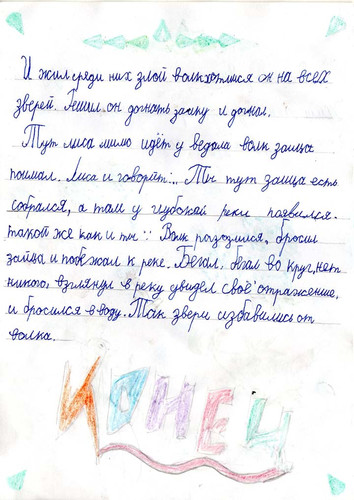 И жил среди них злой волк охотился он на всех
зверей. Решил он догнать зайку и догнал.
Тут лиса мимо идёт у ведала волк зайца
поимал. Лиса и говорет:.. Ты тут зайца есть
собрался, а там у глубокай реки появился.
такой же как и ты :: Волк разозлился, бросил
зайца и побежал к реке. Бегал, бегал во круг, нет
никого, взглянул в реку увидел своё отражение,
и бросился в воду. Так звери избавились от
волка.
КОНЕЦ